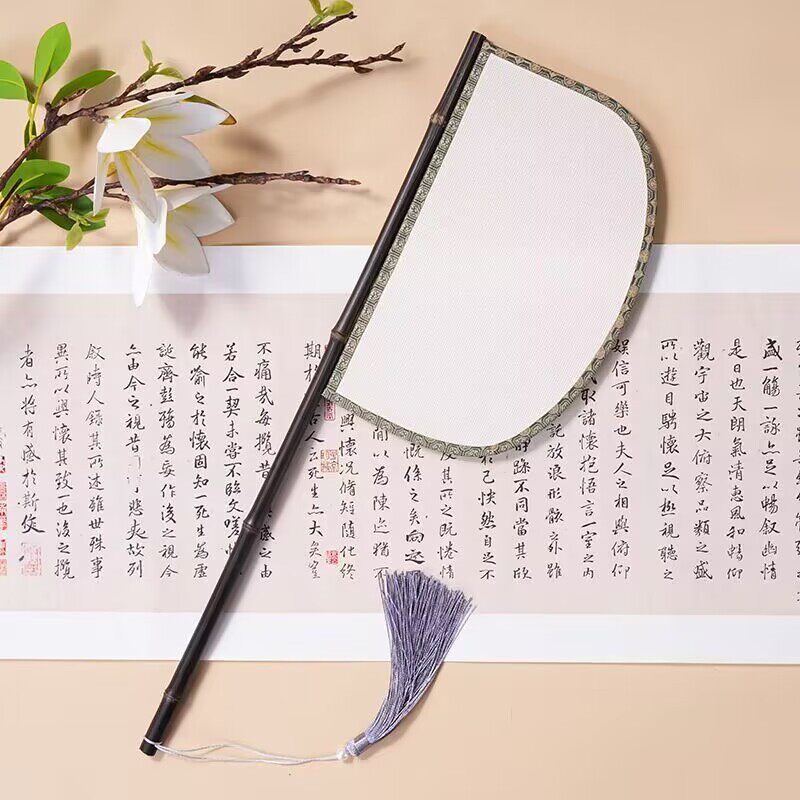 盛一觴一詠亦足以暢叙幽情
是日也天朗氣清惠風和暢仰
觀宇宙之大俯察品類之盛
所以遊目騁懷足以極視聽之
娱信可樂也夫人之相與俯仰
取諸懷抱悟言一室之内
託放浪形骸之外雖
躁不同當其欣
己快然自足不
其所之既惓情
慨係之矣向之
間以為陳迹猶不
興懷況脩短隨化終
期於古人云死生亦大矣豈
不痛哉每攬昔感之由
若合一契未嘗不臨文嗟悼
能喻之於懷固知一死生為虛
誕齊彭殤為妄作後之視今
亦由今之視昔悲夫故列
叙時人錄其所述雖世殊事
異所以興懷其致一也後之攬
者亦將有感於斯文